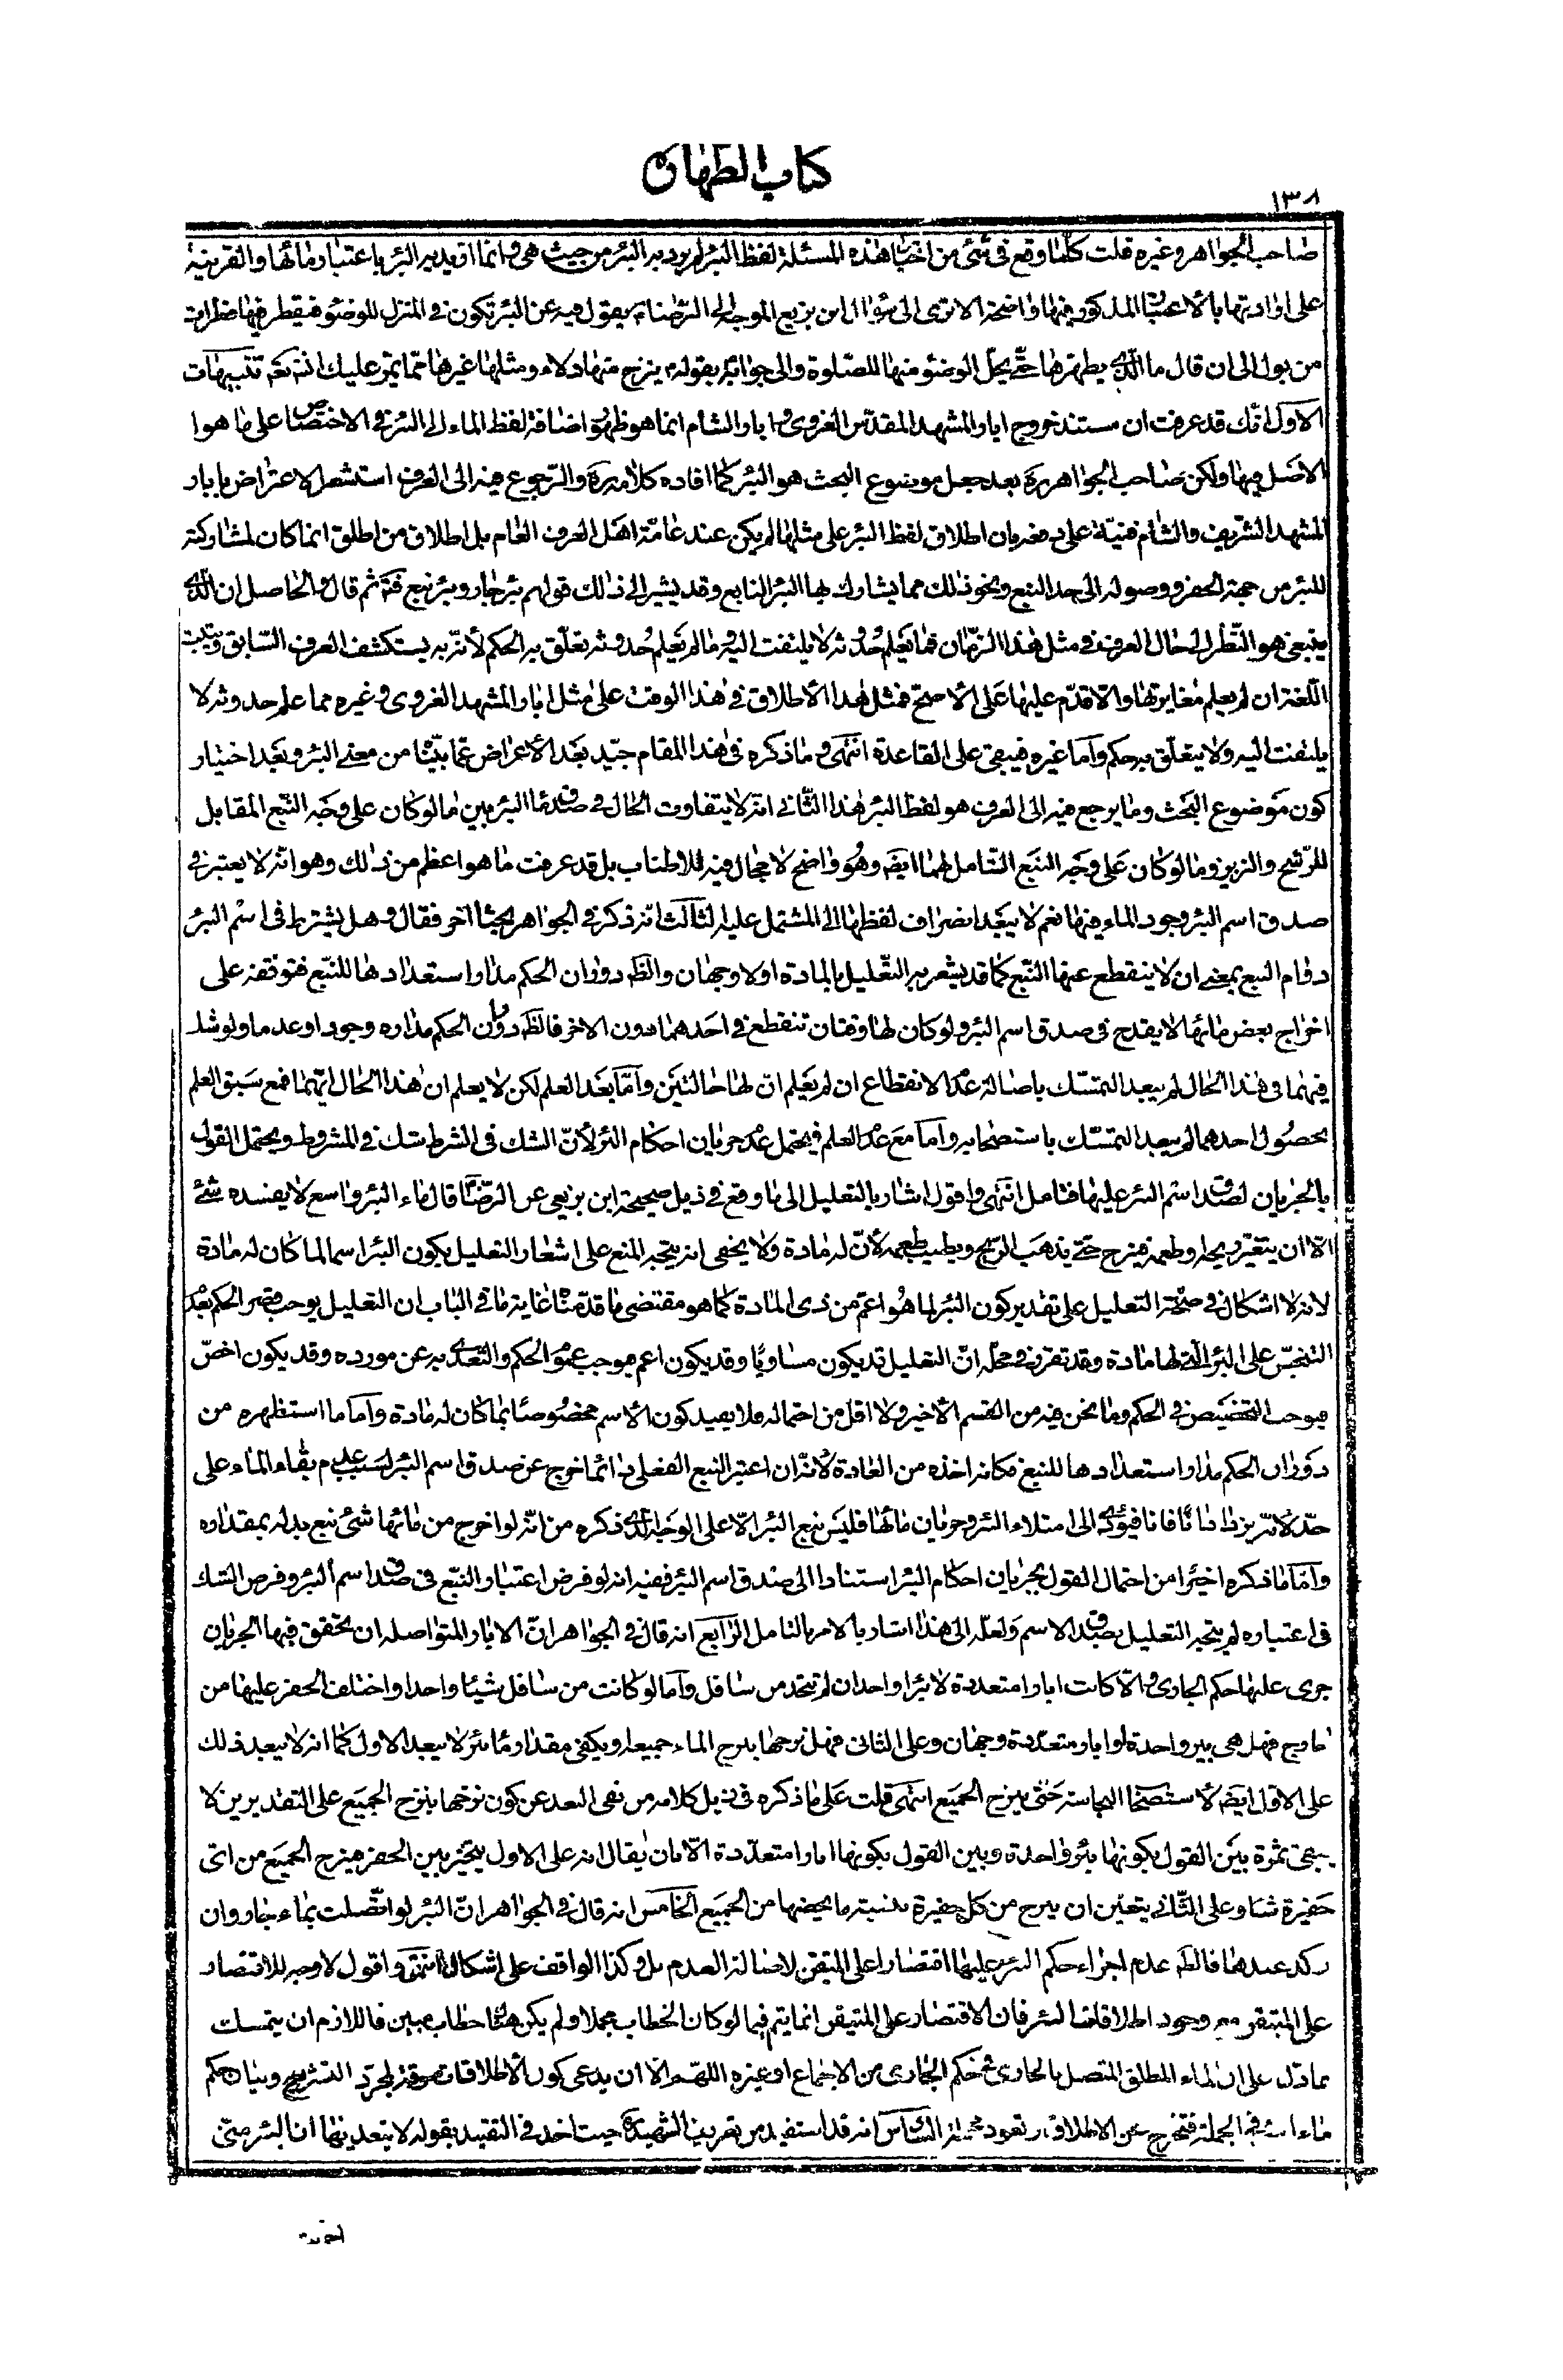 كتاب الطهارة
١٣٨
صاحب الجواهر وغيره قلت كلما وقع في شئ من اخبار هذه المسئلة لفظ البئر لم يرد به البئر من حيث هى وانما اريد به البئر باعتبار مائها والقرينة
على ارادتها بالاعتبار المذكور فيها واضحة الا ترى الى سؤال ابن بزيع الموجه الى الرضا ع بقوله فيه عن البئر تكون في المنزل للوضوء فيقطر فيها قطرات
من بول الى ان قال ما الذي يطهرها حتى يحل الوضوء منها للصلوة والى جوابه بقوله ع ينزح منها دلاء ومثلها غيرها مما يمر عليك انتهى تنبيهات
الاول انك قد عرفت ان مستند خروج ابار المشهد المقدس الغروى وابار الشام انما هو ظهور اضافة لفظ الماء الى البئر في الاختصاص على ما هو
الاصل فيها ولكن صاحب الجواهر ره بعد جعل موضوع البحث هو البئر كما افاده كلامه ره والرجوع فيه الى العرف استشعر الاعتراض بابار
المشهد الشريف والشام فنبه على دفعه بان اطلاق لفظ البئر على مثلها لم يكن عند عامة اهل العرف العام بل اطلاق من اطلق انما كان لمشاركته
للبئر من جهة الحفر ووصوله الى حد النبع ونحو ذلك مما يشارك بها البئر النابع وقد يشير الى ذلك قولهم بئر جار وبئر نبع فت ثم قال والحاصل ان الذي
ينبغي هو النظر الى حال العرف في مثل هذا الزمان فما يعلم حدوثه لا يلتفت اليه وما لم يعلم حدوثه تعلق به الحكم لأنه به يستكشف العرف السابق ويثبت
اللغة ان لم يعلم مغايرتها والا قدم عليها على الأصح فمثل هذا الأطلاق في هذا الوقت على مثل ابار المشهد الغروى وغيره مما علم حدوثه لا
يلتفت اليه ولا يتعلق به حكم وأما غيره فيبقى على القاعدة انتهى وما ذكره في هذا المقام جيد بعد الأعراض عما بيناه من معنى البئر وبعد اختيار
كون موضوع البحث وما يرجع فيه الى العرف هو لفظ البئر هذا الثاني انه لا يتفاوت الحال في صدق ماء البئر بين ما لو كان على وجه النبع المقابل
للرشح والنزيز وما لو كان على وجه النبع الشامل لهما ايضا وهو واضح لا مجال فيه للاطناب بل قد عرفت ما هو اعظم من ذلك وهو انه لا يعتبر في
صدق اسم البئر وجود الماء فيها نعم لا يبعد انصراف لفظها الى المشتمل عليه الثالث انه ذكر في الجواهر بحثا اخر فقال وهل يشترط في اسم البئر
دوام النبع بمعنى ان لا ينقطع عنها النبع كما قد يشعر به التعليل بالمادة اولا وجهان والظ دوران الحكم مدار استعدادها للنبع فتوقفه على
اخراج بعض مائها لا يقدح في صدق اسم البئر ولو كان لها وقتان تنقطع في احدهما دون الاخر فالظ دوران الحكم مداره وجودا وعدما ولو شك
فيهما في هذا الحال لم يبعد التمسك باصالة عدم الانقطاع ان لم يعلم ان لها حالتين وأما بعد العلم لكن لا يعلم ان هذا الحال ايهما فمع سبق العلم
بحصول احدهما لم يبعد التمسك باستصحابه وأما مع عدم العلم فيحتمل عدم جريان احكام البئر لأن الشك في الشرط شك في المشروط ويحتمل القول
بالجريان لصدق اسم البئر عليها فتامل انتهى واقول اشار بالتعليل الى ما وقع في ذيل صحيحة ابن بزيع عن الرضا ع قال ماء البئر واسع لا يفسده شئ
الا ان يتغير ريحه او طعمه فينزح حتى يذهب الريح ويطيب طعمه لأن له مادة ولا يخفى انه يتجه المنع على اشعار التعليل بكون البئر اسما لما كان له مادة
لانه لا اشكال في صحة التعليل على تقدير كون البئر لما هو اعم من ذى المادة كما هو مقتضى ما قدمناه غاية ما في الباب ان التعليل يوجب قصر الحكم بعدم
التنجس على البئر التي لها مادة وقد تقرر في محله ان التعليل قد يكون مساويا وقد يكون اعم فيوجب عموم الحكم والتعدي به عن مورده وقد يكون اخص
فيوجب التخصيص في الحكم وما نحن فيه من القسم الأخير ولا اقل من احتماله فلا يفيد كون الأسم مخصوصا بما كان له مادة وأما ما استظهره من
دوران الحكم مدار استعدادها للنبع فكانه اخذه من العادة لأنه ان اعتبر النبع الفعلي دائما خرج عن صدق اسم البئر لسبب عدم بقاء الماء على
حد لأنه يزداد انا فانا فيؤدي الى امتلاء البئر وجريان مائها فليس نبع البئر الا على الوجه الذي ذكره من انه لو اخرج من مائها شئ نبع بدله بمقداره
وأما ما ذكره اخيرا من احتمال القول بجريان احكام البئر استنادا الى صدق اسم البئر ففيه انه لو فرض اعتبار النبع في صدق اسم البئر وفرض الشك
في اعتباره لم يتجه التعليل بصدق الاسم ولعله الى هذا اشار بالامر بالتامل الرابع انه قال في الجواهر ان الابار المتواصله ان تحقق فيها الجريان
جرى عليها حكم الجاري والا كانت ابارا متعددة لا بئرا واحدا ان لم تتحد من سافل وأما لو كانت من سافل شيئا واحدا واختلف الحفر عليها من
خارج فهل هي بئر واحدة او ابار متعددة وجهان وعلى الثاني فهل نزحها بنزح الماء جميعا او يكفي مقدار ماء بئر لا يبعد الاول كما انه لا يبعد ذلك
على الاول ايضا لاستصحاب النجاسة حتى ينزح الجميع انتهى قلت على ما ذكره في ذيل كلامه من نفي البعد عن كون نزحها بنزح الجميع على التقديرين لا
يبقى ثمرة بين القول بكونها بئرا واحدة وبين القول بكونها ابارا متعددة الا بان يقال انه على الاول يتخير بين الحفر فينزح الجميع من اى
حفيرة شاء وعلى الثاني يتعين ان ينزح من كل حفيرة بنسبة ما يخصها من الجميع الخامس انه قال في الجواهر ان البئر لو اتصلت بماء جار وان
ركد عندها فالظ عدم اجراء حكم البئر عليها اقتصارا على المتيقن لاصالة العدم بل وكذا الواقف على اشكال انتهى واقول لا وجه للاقتصار
على المتيقن مع وجود اطلاقات البئر فان الاقتصار على المتيقن انما يتم فيما لو كان الخطاب مجملا ولم يكن هناك خطاب مبين فاللازم ان يتمسك
بما دل على ان الماء المطلق المتصل بالجاري في حكم الجاري من الاجماع او غيره اللهم الا ان يدعى كون الأطلاقات مسوقة لمجرد التشريع وبيان حكم
ماء البئر في الجملة فتخرج عن الاطلاق السادس انه قد استفيد من تعريف الشهيد ره حيث اخذ في التقييد بقوله لا يتعداها ان البئر متى